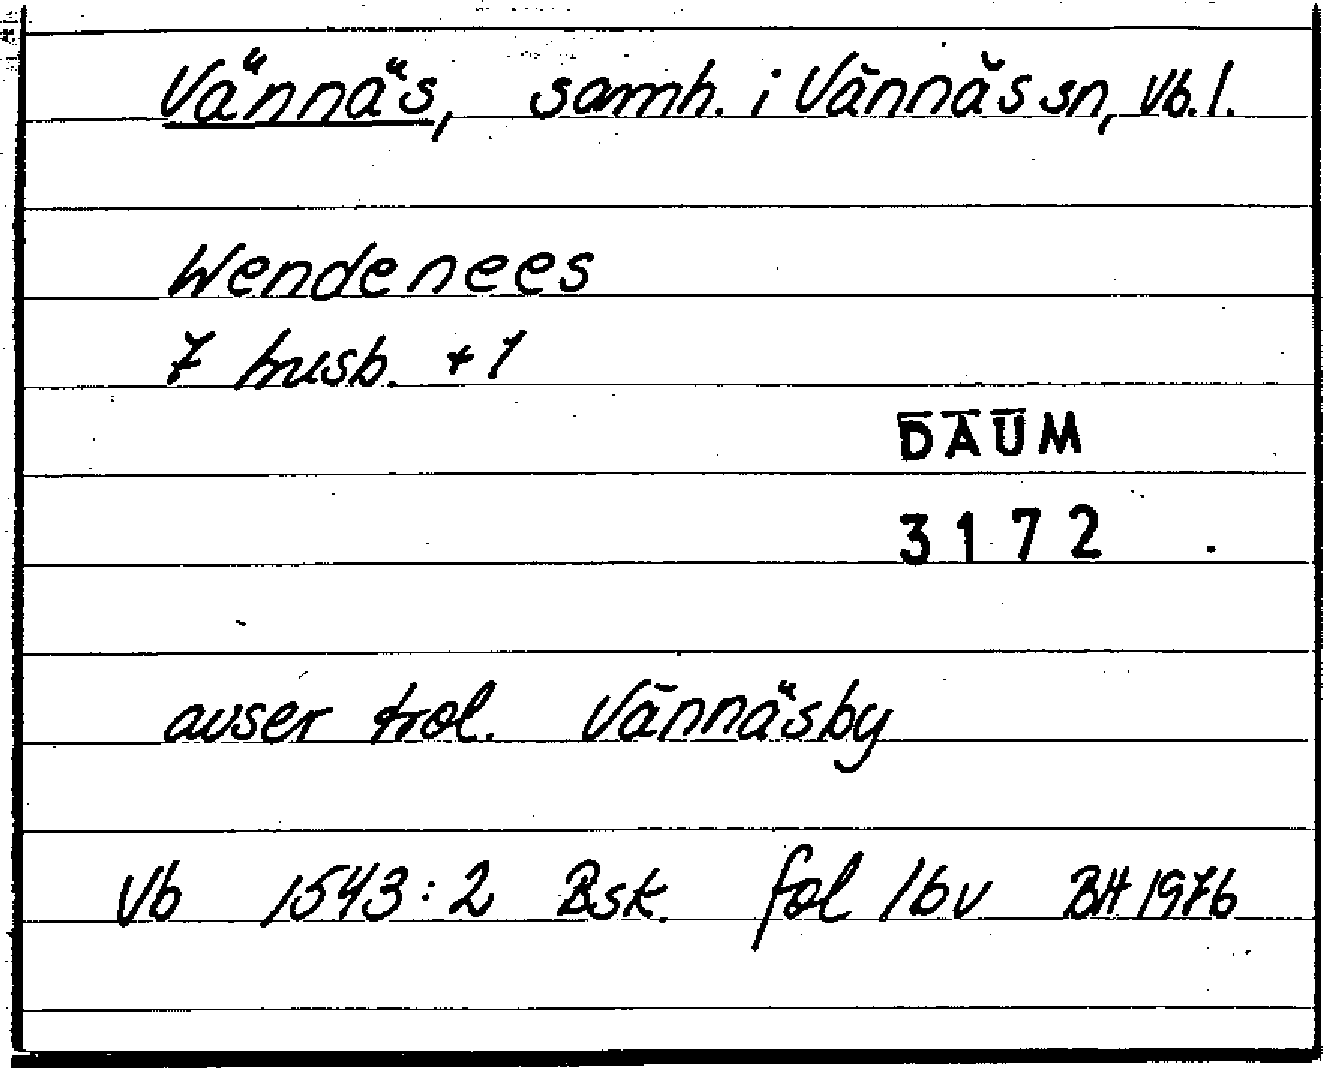 Vännäs, samh. i Vännäs sn, Vb.l.
Wendenees
7 husb. + 1
DAUM
3172
avser trol. Vännäsby
Vb 1543:2 Bsk. fol 16v BH 1976